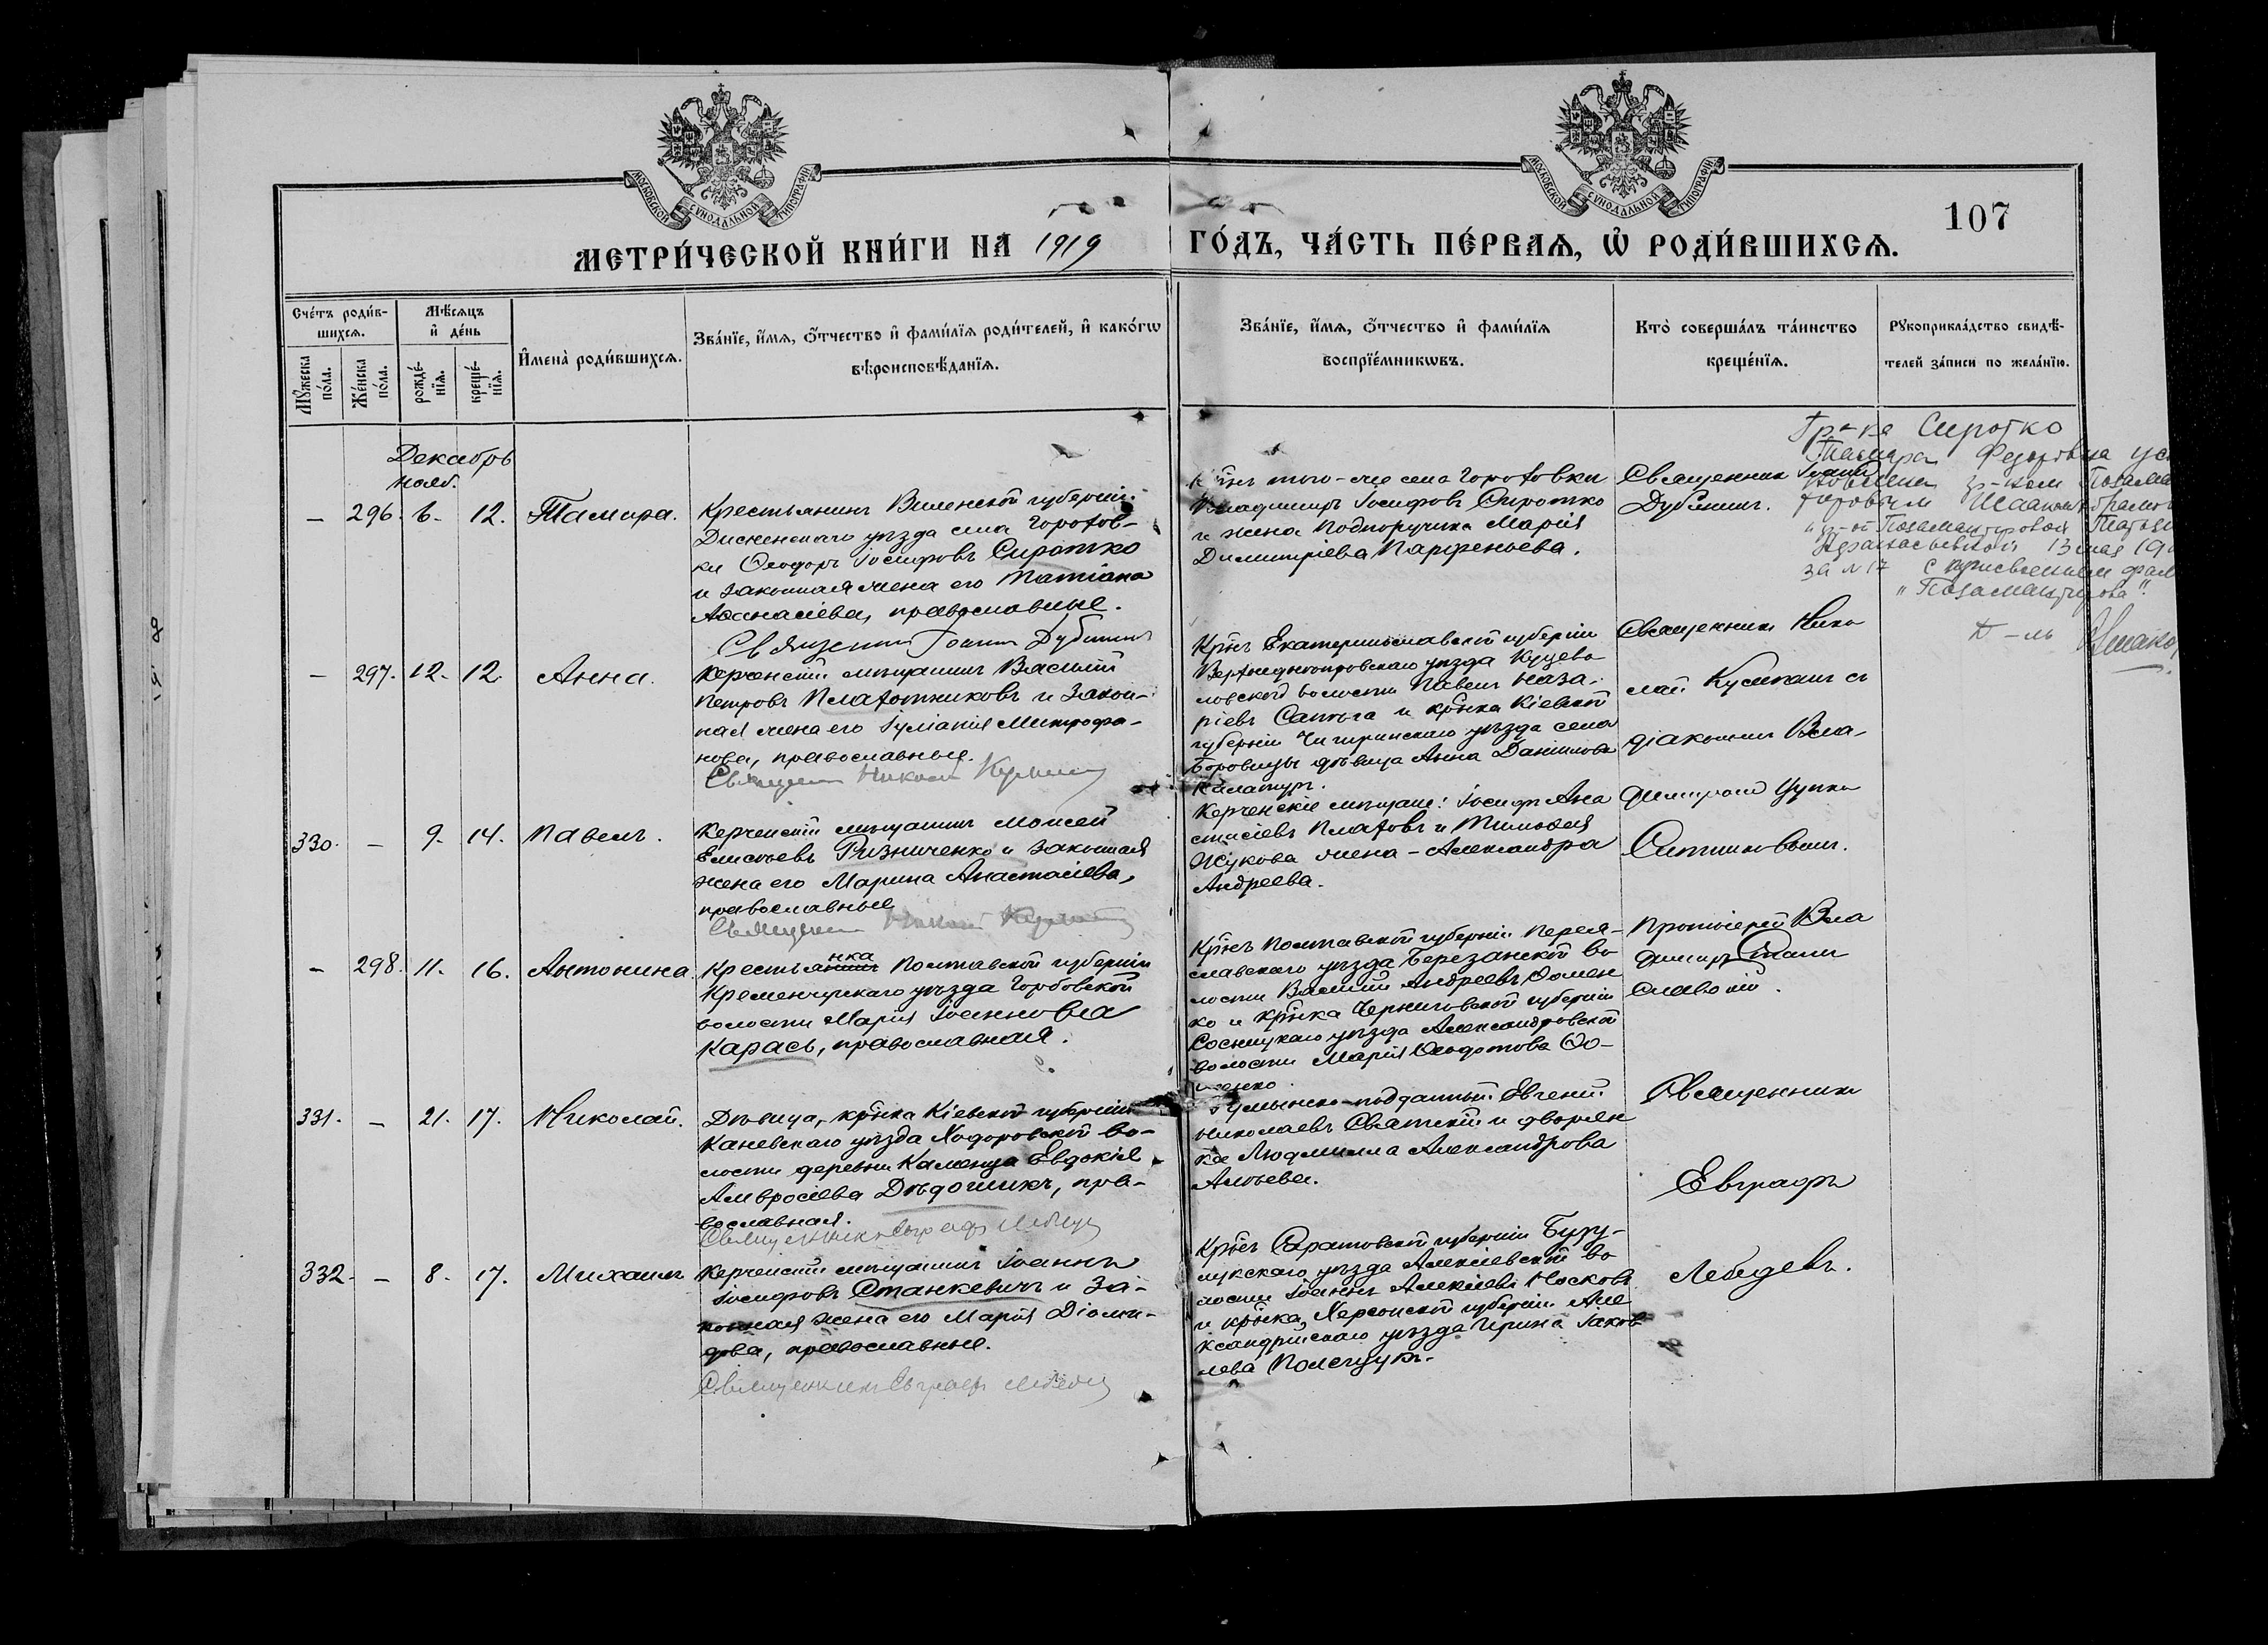 МОСКОВСКОЙ СУНОДАЛЬНОЙ ТИПОГРАФІИ
МОСКОВСКОЙ СУНОДАЛЬНОЙ ТИПОГРАФІИ
107
МЕТРИ́ЧЕСКОЙ КНИ́ГИ НА 1919
ГО́ДЪ, ЧА́СТЬ ПЕ́РВАѦ, Ѡ РОДИ́ВШИХСѦ.
Сче́тъ роди́в-
шихсѧ.
Мꙋжеска по́ла.
Же́нска по́ла.
Мѣ́сѧцъ
и҆ де́нь
рожде́-
нїѧ.
креще́-
нїѧ.
И҆мена̀ роди́вшихсѧ.
Зва́нїе, и҆́мѧ, ѻ҆́тчество и҆ фами́лїѧ роди́телей, и҆ како́гѡ
вѣроисповѣ́данїѧ.
Зва́нїе, и҆́мѧ, ѻ҆́тчество и҆ фами́лїѧ
воспрїе́мникѡвъ.
Кто̀ соверша́лъ та́инство
креще́нїѧ.
Рꙋкоприкла́дство свидѣ́-
телей за́писи по жела́нїю.
Декабрь
нояб.
— 296. 6. 12. Тамара.
Крестьянинъ Виленской губерніи
Дисненскаго уѣзда села Горотов-
ки Ѳеодоръ Іосифовъ Сиротко
и законная жена его Татіана
Аѳанасіева, православные.
Священник Іоанн Дубинин
того-же села Горотовки
Владимиръ Іосифовъ Сиротко
и жена подпоручика Марія
Димитріева Парфеньева.
Священник Іоанн
Дубинин.
Гр-ка Сиротко
Тамара Федоровна
13 мая
за №17 с присвоением фам
"Позамантирова".
— 297. 12. 12. Анна.
Керченскій мѣщанинъ Василій
Петровъ Платотниковъ и закон-
ная жена его Іуліанія Митрофа-
нова, православные.
Священник Николай
Кр̃нъ Екатеринославской губерніи
Верхнеднепровскаго уѣзда Куцево
ловской волости Павелъ Наза-
ріевъ Сапыга и кр̃нка Кіевской
губерніи Чигиринскаго уѣзда села
Боровицы дѣвица Анна Даніилова
Калатуръ.
Священник Нико
лай съ
діакономъ Вла-
димиромъ
330. — 9. 14. Павелъ.
Керченскій мѣщанинъ Моисей
Елисѣевъ Ризниченко и законная
жена его Марина Анастасіева,
православные
Священник Николай
Керченскіе мѣщане: Іосифъ Ана
стасіевъ Платовъ и Тимоѳея
Жукова жена - Александра
Андреева.
— 298. 11. 16. Антонина.
Крестьянка Полтавской губерніи
Кременчугскаго уѣзда
волости Марія Іоаннова
Карась, православная.
Кр̃нъ Полтавской губерніи Перея-
славскаго уѣзда Березанской во
лости Василій Андреевъ Ѳомен
ко и кр̃нка Черниговской губерніи
Сосницкаго уѣзда Александровской
волости Марія Ѳеодотова Ѳо-
менко.
Протоіерей Вла
димиръ Стани
славскій.
331. — 21. 17. Николай.
Дѣвица, кр̃нка Кіевской губерніи
Каневскаго уѣзда Ходоровской во-
лости деревни Каленца Евдокія
Амвросіева Дѣдошикъ, пра-
вославная.
Священник Евграф Лебедев
Румынско-подданный Евгеній
Николаевъ Сватскій и дворян
ка Людмилла Александрова
Священникъ
Евграфъ
332. — 8. 17. Михаилъ
Керченскій мѣщанинъ Іоаннъ
Іосифовъ Станкевичъ и за-
конная жена его Марія Діоми-
дова, православные.
Священник Евграф Лебедев
Кр̃нъ Саратовской губерніи Бузу-
лукскаго уѣзда Алексіевской во
лости Іоаннъ Алексіевъ Носковъ
и кр̃нка, Херсонской губерніи Але
ксандрійскаго уѣзда Ирина Іаков
лева Полещукъ.
Лебедевъ.